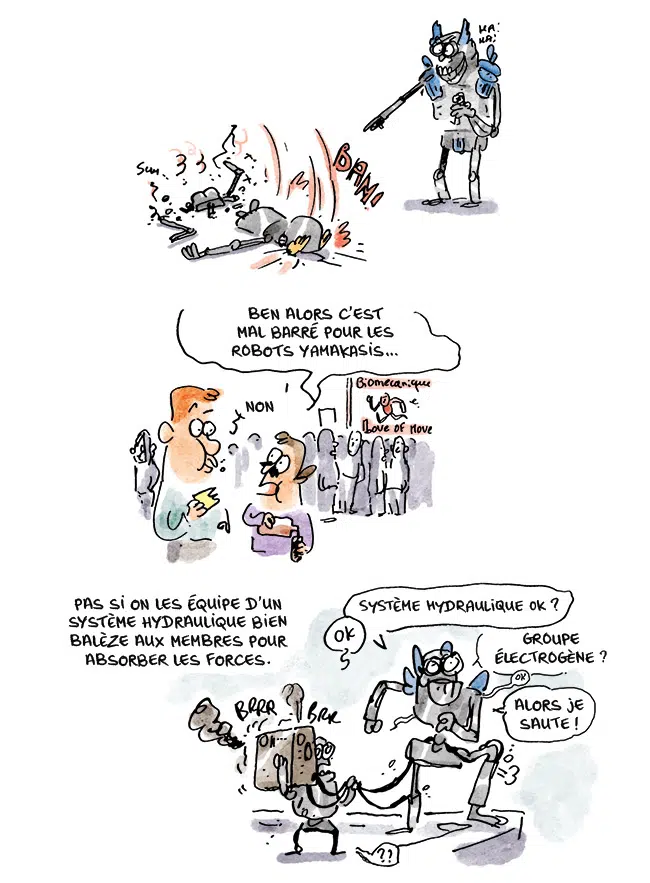 HA!
HA!
BAM!
BEN ALORS C'EST
MAL BARRÉ POUR LES
ROBOTS YAMAKASIS...
Biomecanique
NON
Love of Move
PAS SI ON LES ÉQUIPE D'UN
SYSTÈME HYDRAULIQUE BIEN
BALÈZE AUX MEMBRES POUR
ABSORBER LES FORCES.
SYSTÈME HYDRAULIQUE OK ?
OK
GROUPE
ÉLECTROGÈNE ?
OK
ALORS JE
SAUTE !
BRRR
BRR
??